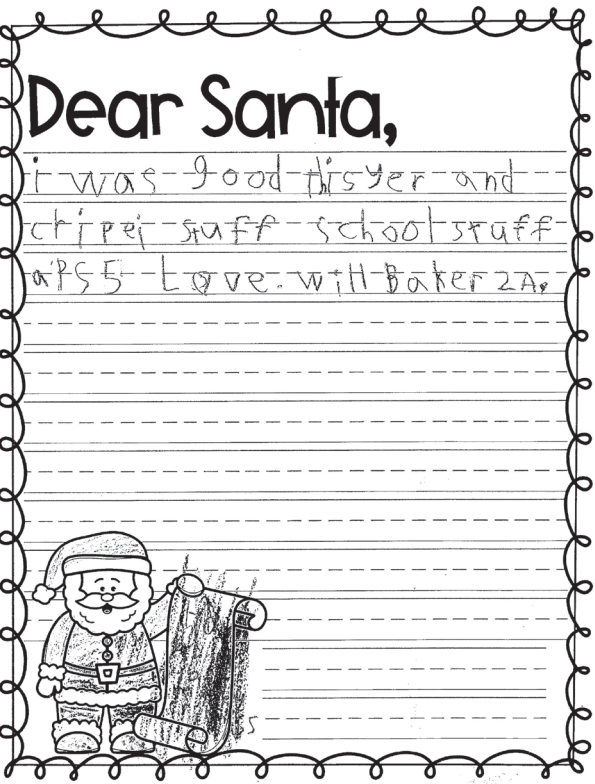 Dear Santa,
i was good this yer and
stuff school stuff
a PS5 Love. will Baker 2A.